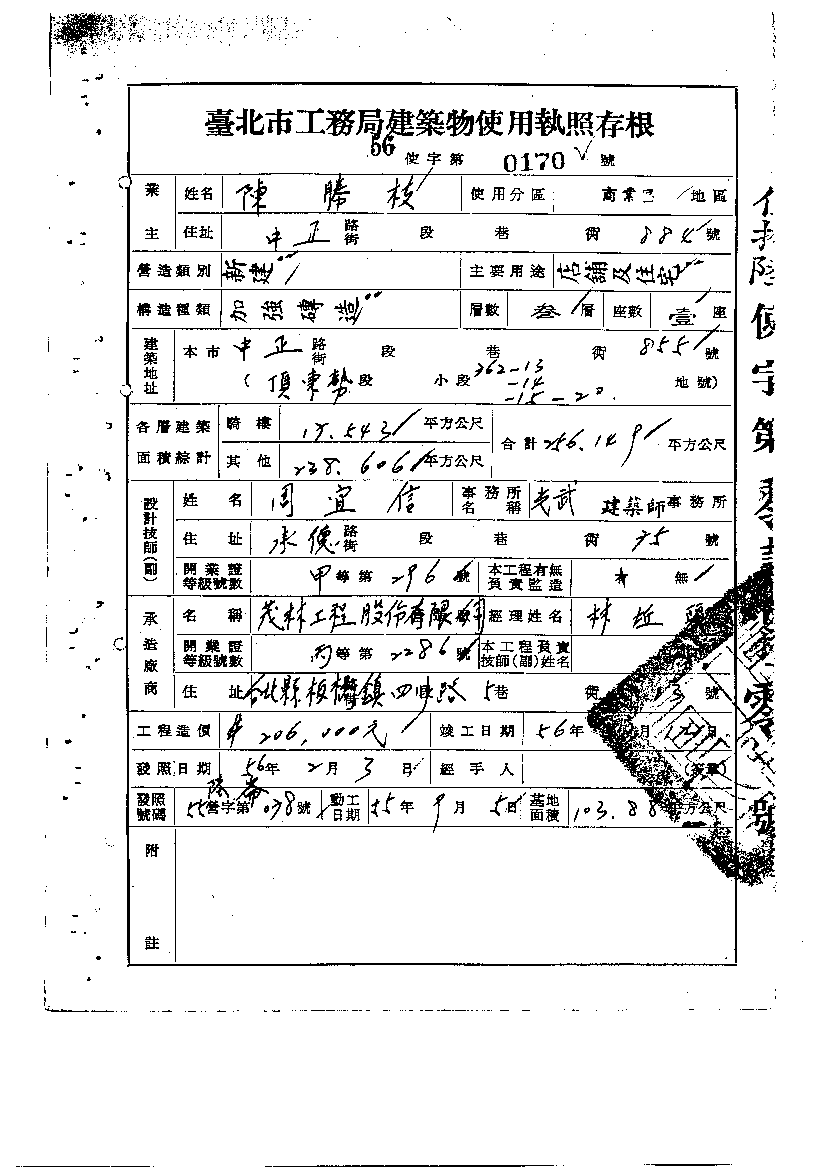 臺北市工務局建築物使用執照存根
56 使字第 0170 號
業主 姓名 陳勝 使用分區 商業 地區
住址 中正 路街 段 巷 衖 884 號
營造類別 新建 主要用途 店舖及住宅
構造種類 加強磚造 層數 叁 層 座數 壹 座
建築地址 本市 中正 路街 段 巷 衖 855 號
(頂東勢 段 小段 362-13 -14 -15-20 地號)
各層建築面積綜計 騎樓 17.543 平方公尺 合計 256.149 平方公尺
其他 238.606 平方公尺
設計技師(副) 姓名 周宜信 事務所名稱 建築師事務所
住址 承德 路街 段 巷 衖 75 號
開業證等級號數 甲等第 296 號 本工程有無負責監造 無
承造廠商 名稱 茂林工程股份有限 經理姓名 林
開業證等級號數 丙等第 2286 號 本工程負責技師(副)姓名
住址 台北縣板橋鎮四 路 5巷 衖 號
工程造價 206,000元 竣工日期 56年 月 日
發照日期 56年 2月 3日 經手人
發照號碼 55 營字第 038 號 動工日期 55年 9月 5日 基地面積 103.88 平方公尺
附註
使字第